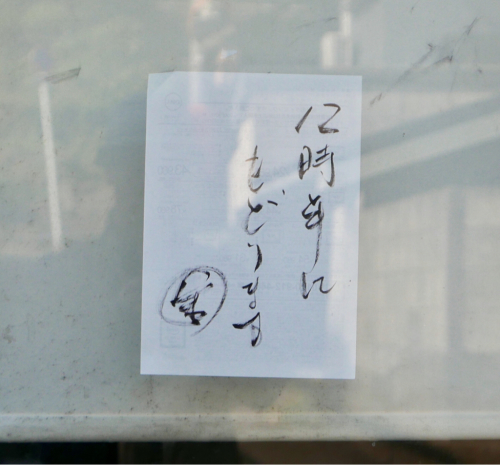 12時半に
もどります